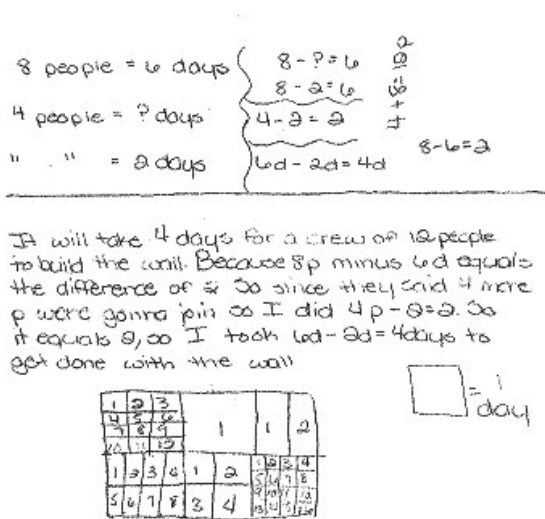 8 people = 6 days
8 - ? = 6
8 - 2 = 6
4 + 8 = 12
4 people = ? days
4 - 2 = 2
8-6=2
" " = 2 days
6d - 2d = 4d
It will take 4 days for a crew of 12 people
to build the wall. Because 8p minus 6d equals
the difference of 2 So since they said 4 more
p were gonna join so I did 4p-2=2. So
it equals 2, so I took 6d-2d=4days to
get done with the wall
= 1 day
1 2 3
4 5 6
7 8 9
10 11 12
1
1 2
1 2 3 4
5 6 7 8
1 2
3 4
1 2 3 4
5 6 7 8
9 10 11 12